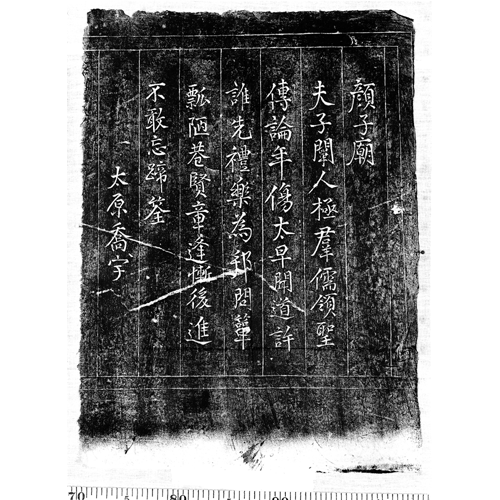 顏子廟
夫子闡人極羣儒領聖
傳論年傷太早聞道許
誰先禮樂為邦問簞
瓢陋巷賢章逢慙後進
不敢忘蹄筌
太原喬宇
70 80 90